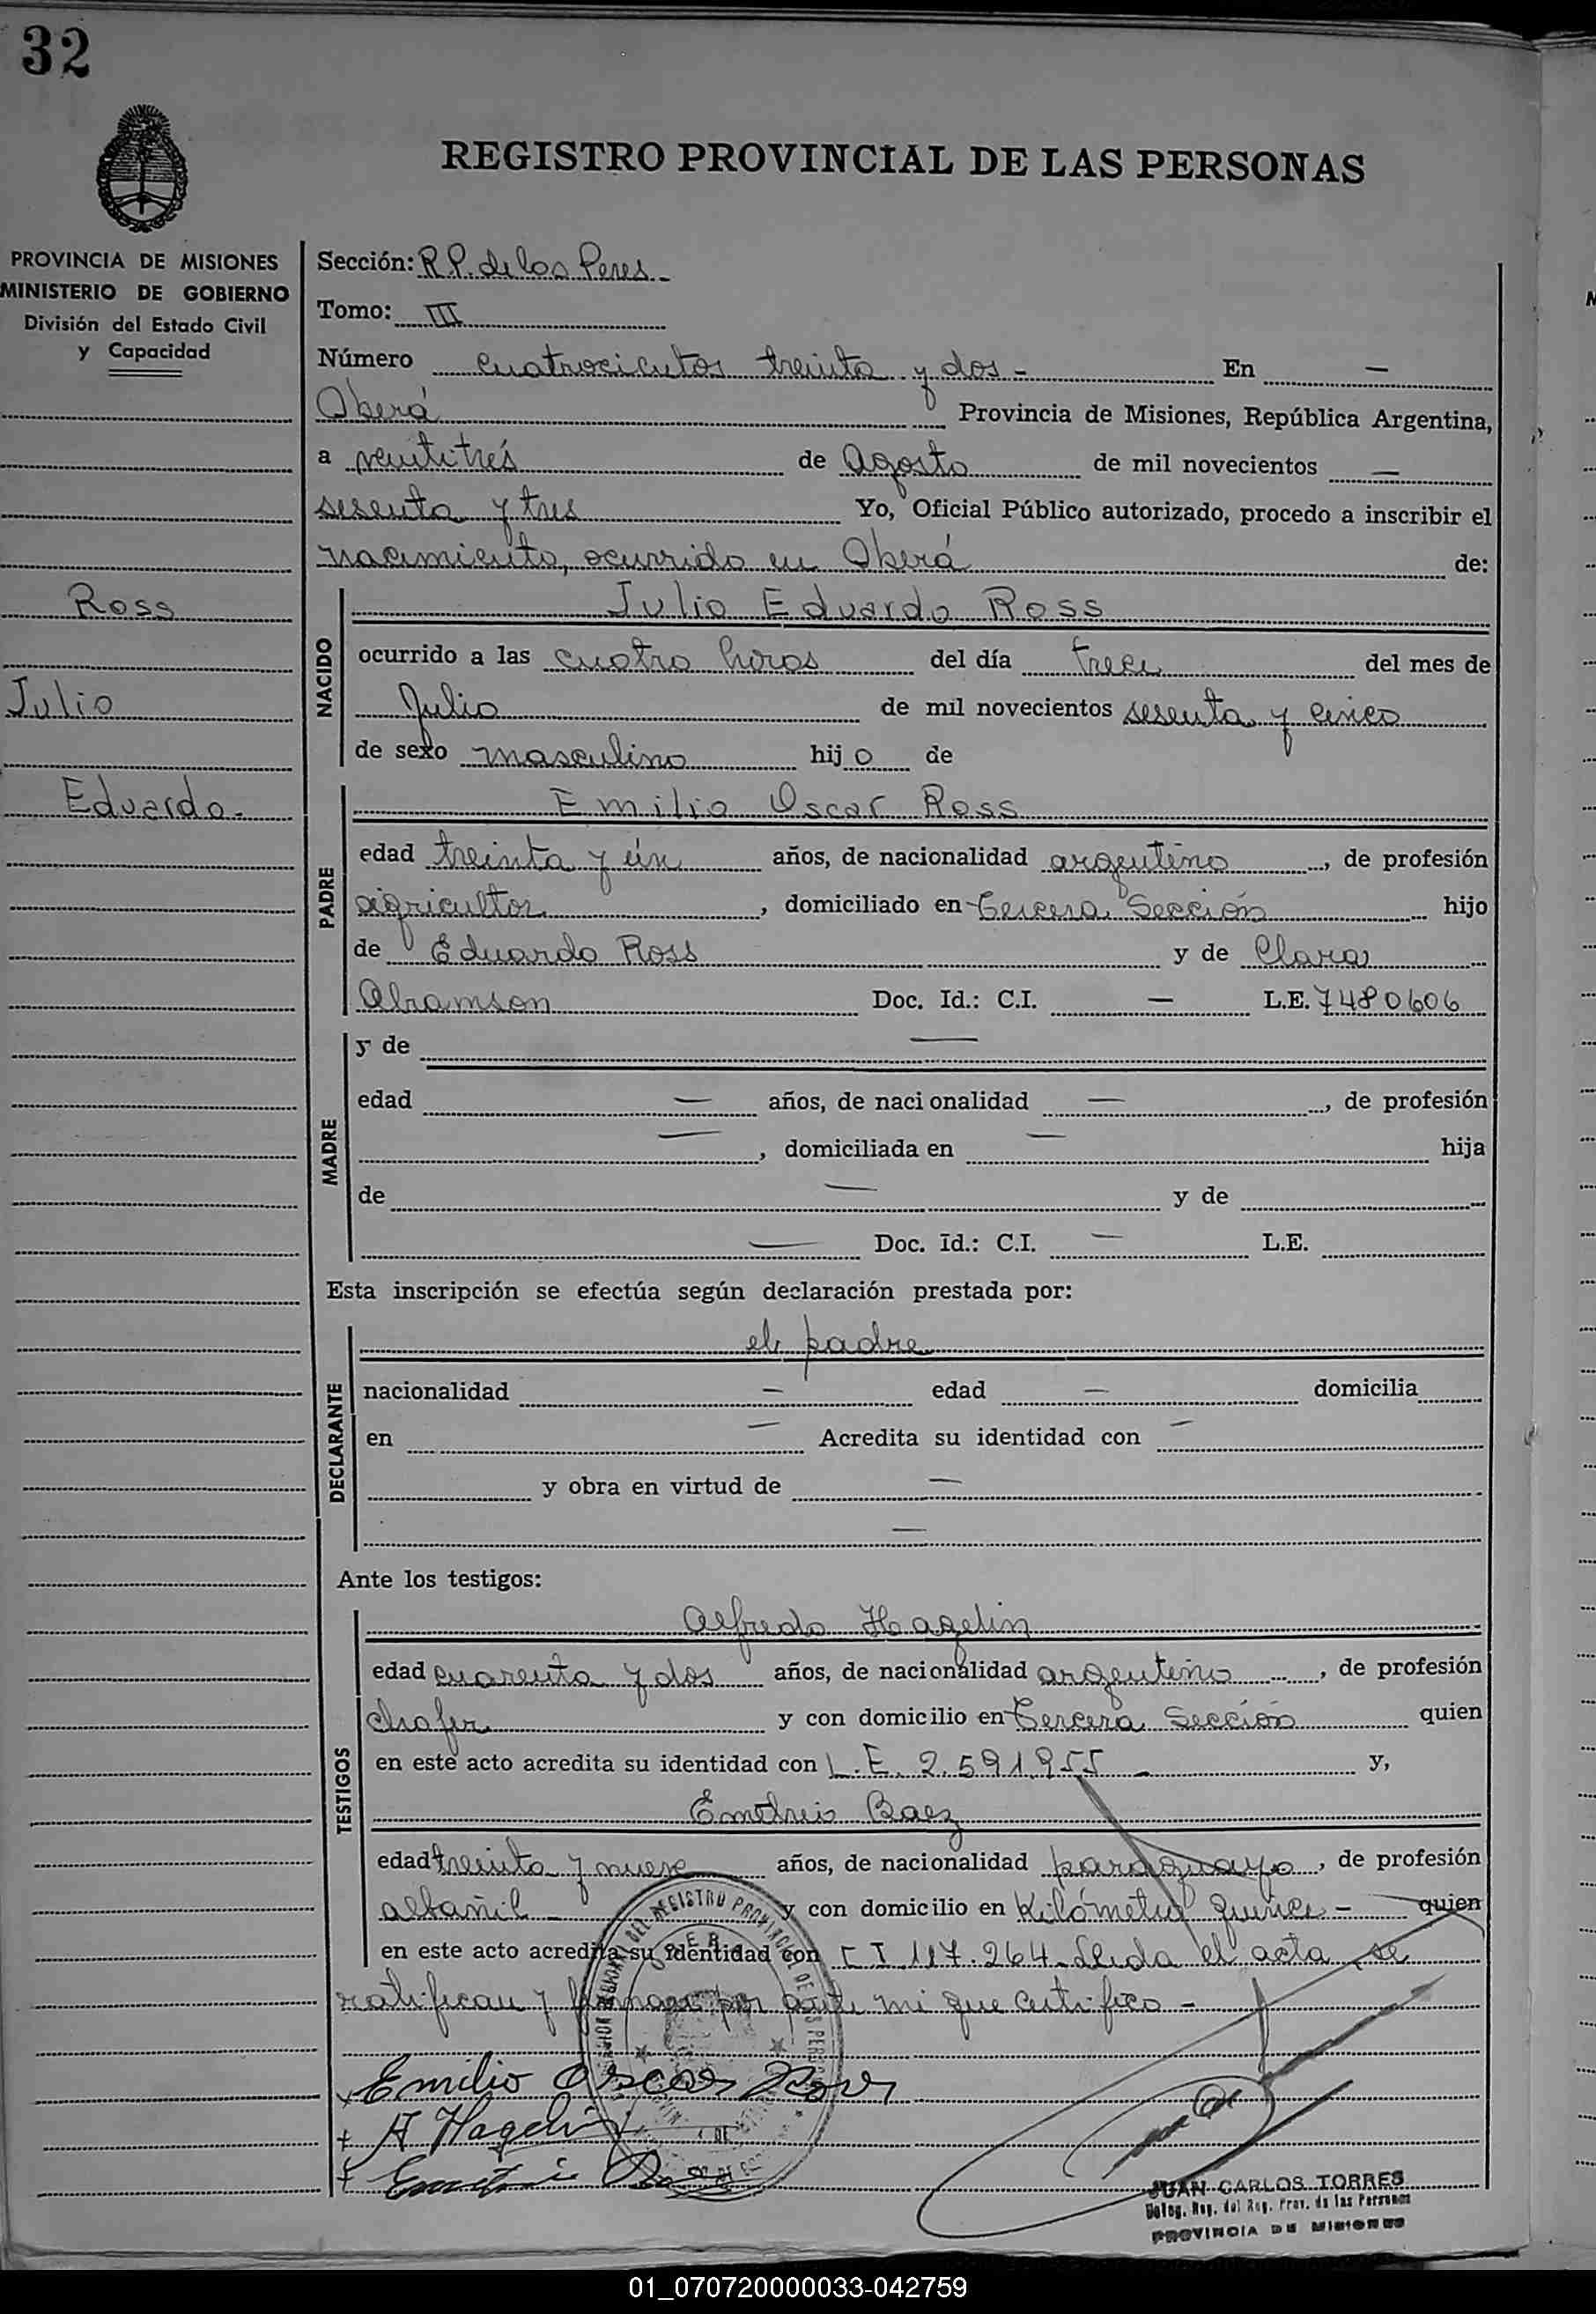 32
REGISTRO PROVINCIAL DE LAS PERSONAS
PROVINCIA DE MISIONES
MINISTERIO DE GOBIERNO
División del Estado Civil
y Capacidad
Ross
Julio
Eduardo.
Sección: R.P. de las Perss.
Tomo: III
Número cuatrocientos treinta y dos - En —
Oberá Provincia de Misiones, República Argentina,
a veintitrés de Agosto de mil novecientos —
sesenta y tres Yo, Oficial Público autorizado, procedo a inscribir el
nacimiento, ocurrido en Oberá de:
NACIDO
Julio Eduardo Ross
ocurrido a las cuatro horas del día trece del mes de
Julio de mil novecientos sesenta y cinco
de sexo masculino hijo de
PADRE
Emilio Oscar Ross
edad treinta y ún años, de nacionalidad argentino, de profesión
agricultor, domiciliado en Tercera Sección hijo
de Eduardo Ross y de Clara
Abramson Doc. Id.: C.I. — L.E. 7480606
MADRE
y de —
edad — años, de nacionalidad —, de profesión
—, domiciliada en — hija
de — y de
— Doc. Id.: C.I. — L.E.
Esta inscripción se efectúa según declaración prestada por:
DECLARANTE
el padre
nacionalidad — edad — domicilia
en — Acredita su identidad con —
y obra en virtud de —
—
Ante los testigos:
TESTIGOS
Alfredo Hagelin
edad cuarenta y dos años, de nacionalidad argentino, de profesión
chofer y con domicilio en Tercera Sección quien
en este acto acredita su identidad con L.E. 2.591.955 - y,
Baez
edad treinta y nueve años, de nacionalidad paraguayo, de profesión
albañil - y con domicilio en Kilómetro quince - quien
en este acto acredita su identidad con C I 117.264. Leida el acta, se
ratifican y firman por ante mi que certifico -
Emilio Oscar Ross
A Hagelin
JUAN CARLOS TORRES
Deleg. Reg. del Reg. Prov. de las Personas
PROVINCIA DE MISIONES
01_070720000033-042759